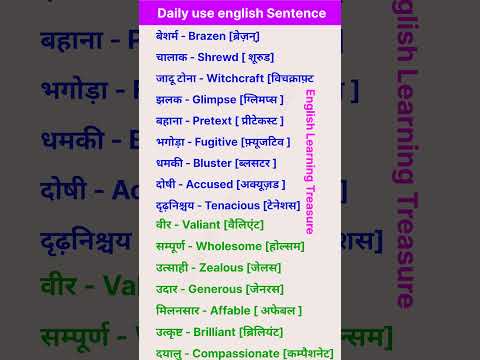 Daily use english Sentence
बेशर्म - Brazen [ब्रेज़न्]
चालाक - Shrewd [ शूरुड]
जादू टोना - Witchcraft [विचक्राफ़्ट
झलक - Glimpse [ग्लिमप्स ]
बहाना - Pretext [ प्रीटेकस्ट ]
भगोड़ा - Fugitive [फ़्यूजटिव ]
धमकी - Bluster [ब्लसटर ]
दोषी - Accused [अक्यूज़ड ]
दृढ़निश्चय - Tenacious [टेनेशस]
वीर - Valiant [वैलिएंट]
सम्पूर्ण - Wholesome [होल्सम]
उत्साही - Zealous [जेलस]
उदार - Generous [जेनरस]
मिलनसार - Affable [ अफेबल ]
उत्कृष्ट - Brilliant [ब्रिलियंट]
दयालु - Compassionate [कम्पैशनेट]
English Learning Treasure
बहाना -
भगोड़ा -
धमकी -
दोषी - Ac
दृढ़निश्चय
वीर - Val
सम्पूर्ण -
English Learning
Treasure